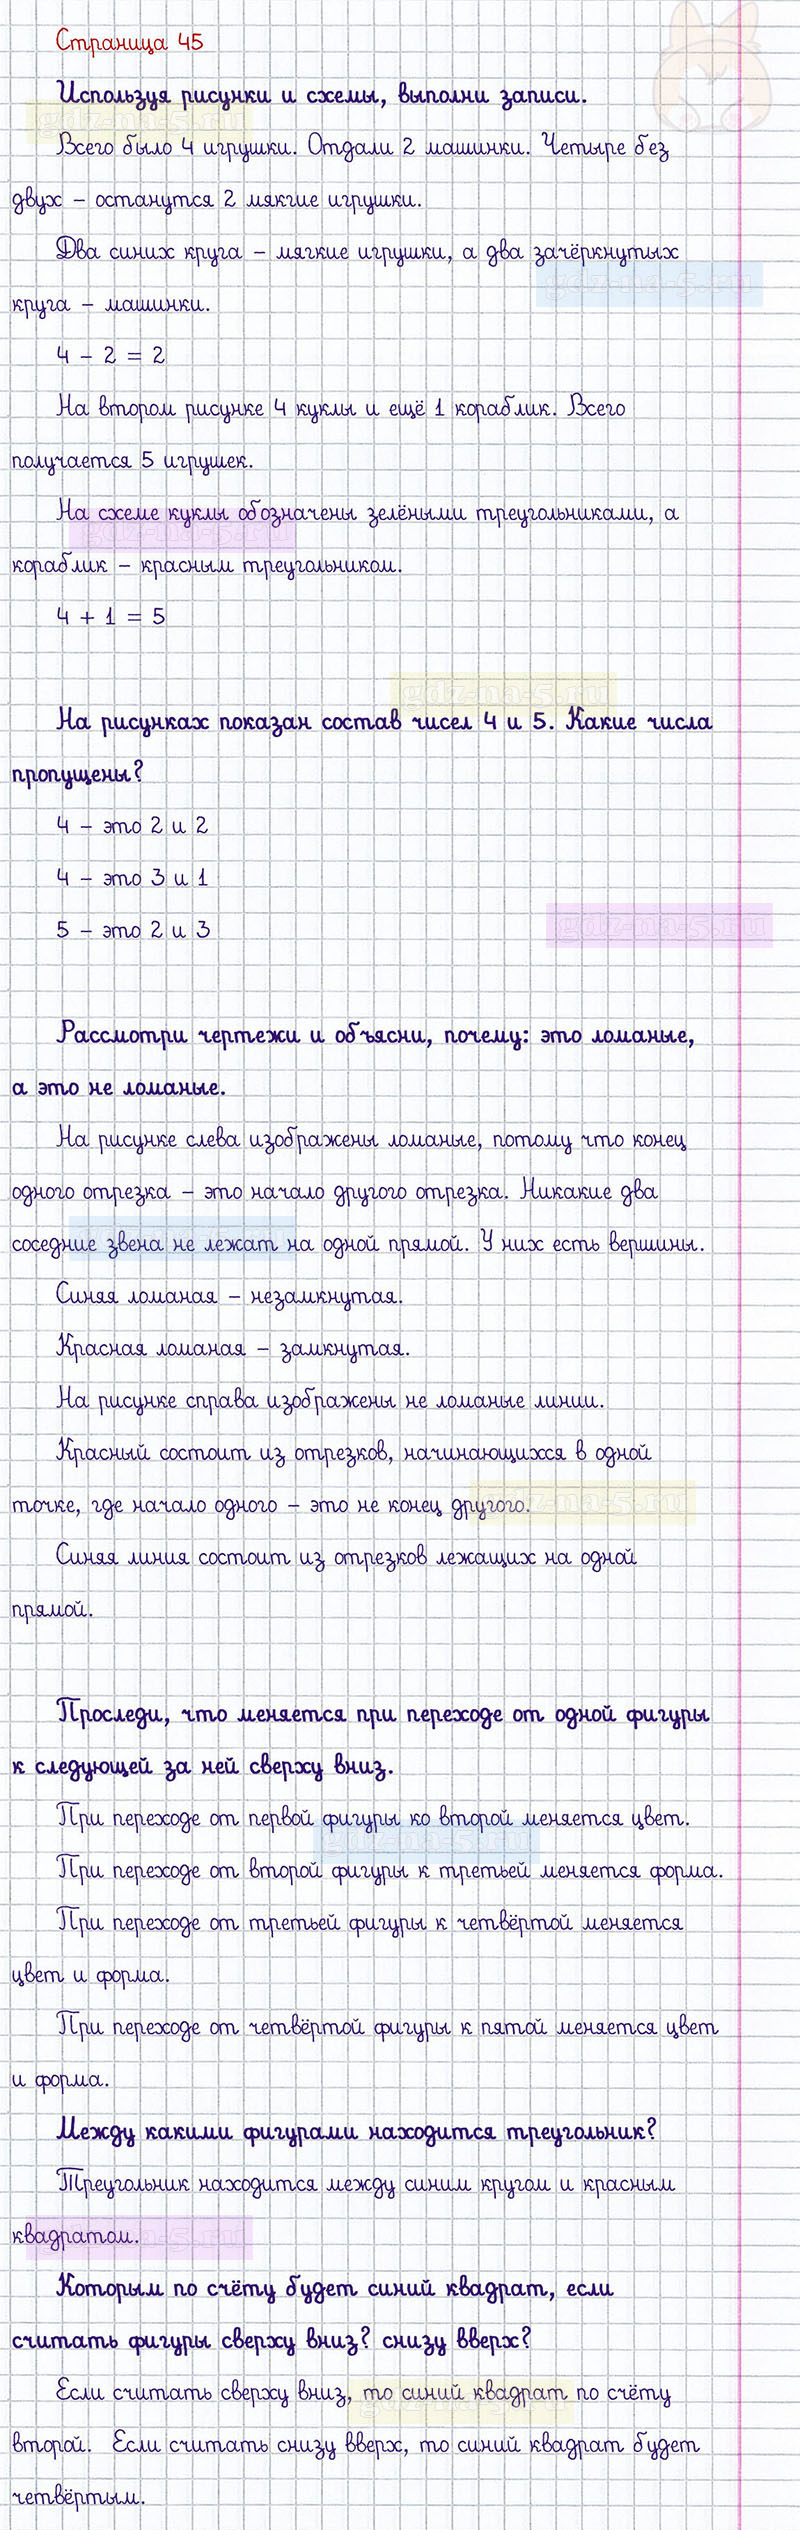 Страница 45
Используя рисунки и схемы, выполни записи.
gdz-na-5.ru
Всего было 4 игрушки. Отдали 2 машинки. Четыре без
двух – останутся 2 мякгие игрушки.
Два синих круга – мягкие игрушки, а два зачёркнутых
gdz-na-5.ru
круга – машинки.
4 – 2 = 2
На втором рисунке 4 куклы и ещё 1 кораблик. Всего
получается 5 игрушек.
На схеме куклы обозначены зелёными треугольниками, а
gdz-na-5.ru
кораблик – красным треугольником.
4 + 1 = 5
gdz-na-5.ru
На рисунках показан состав чисел 4 и 5. Какие числа
пропущены?
4 – это 2 и 2
4 – это 3 и 1
5 – это 2 и 3
gdz-na-5.ru
Рассмотри чертежи и объясни, почему: это ломаные,
а это не ломаные.
На рисунке слева изображены ломаные, потому что конец
одного отрезка – это начало другого отрезка. Никакие два
соседние звена не лежат на одной прямой. У них есть вершины.
Синяя ломаная – незамкнутая.
Красная ломаная – замкнутая.
На рисунке справа изображены не ломаные линии.
Красный состоит из отрезков, начинающихся в одной
точке, где начало одного – это не конец другого.
gdz-na-5.ru
Синяя линия состоит из отрезков лежащих на одной
прямой.
Проследи, что меняется при переходе от одной фигуры
к следующей за ней сверху вниз.
При переходе от первой фигуры ко второй меняется цвет.
gdz-na-5.ru
При переходе от второй фигуры к третьей меняется форма.
При переходе от третьей фигуры к четвёртой меняется
цвет и форма.
При переходе от четвёртой фигуры к пятой меняется цвет
и форма.
Между какими фигурами находится треугольник?
Треугольник находится между синим кругом и красным
квадратом.
gdz-na-5.ru
Которым по счёту будет синий квадрат, если
считать фигуры сверху вниз? снизу вверх?
Если считать сверху вниз, то синий квадрат по счёту
gdz-na-5.ru
второй. Если считать снизу вверх, то синий квадрат будет
четвёртым.